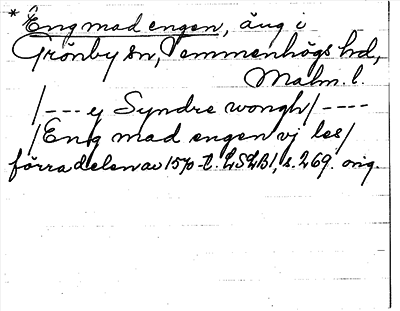 *Engmadengen, äng i
Grönby sn, Vemmenhögs hd,
Malm. l.
/--- ej Syndre wongh/----
/Eng mad engen vj les/
förra delen av 1570-t. LSLB1, s. 269. orig.